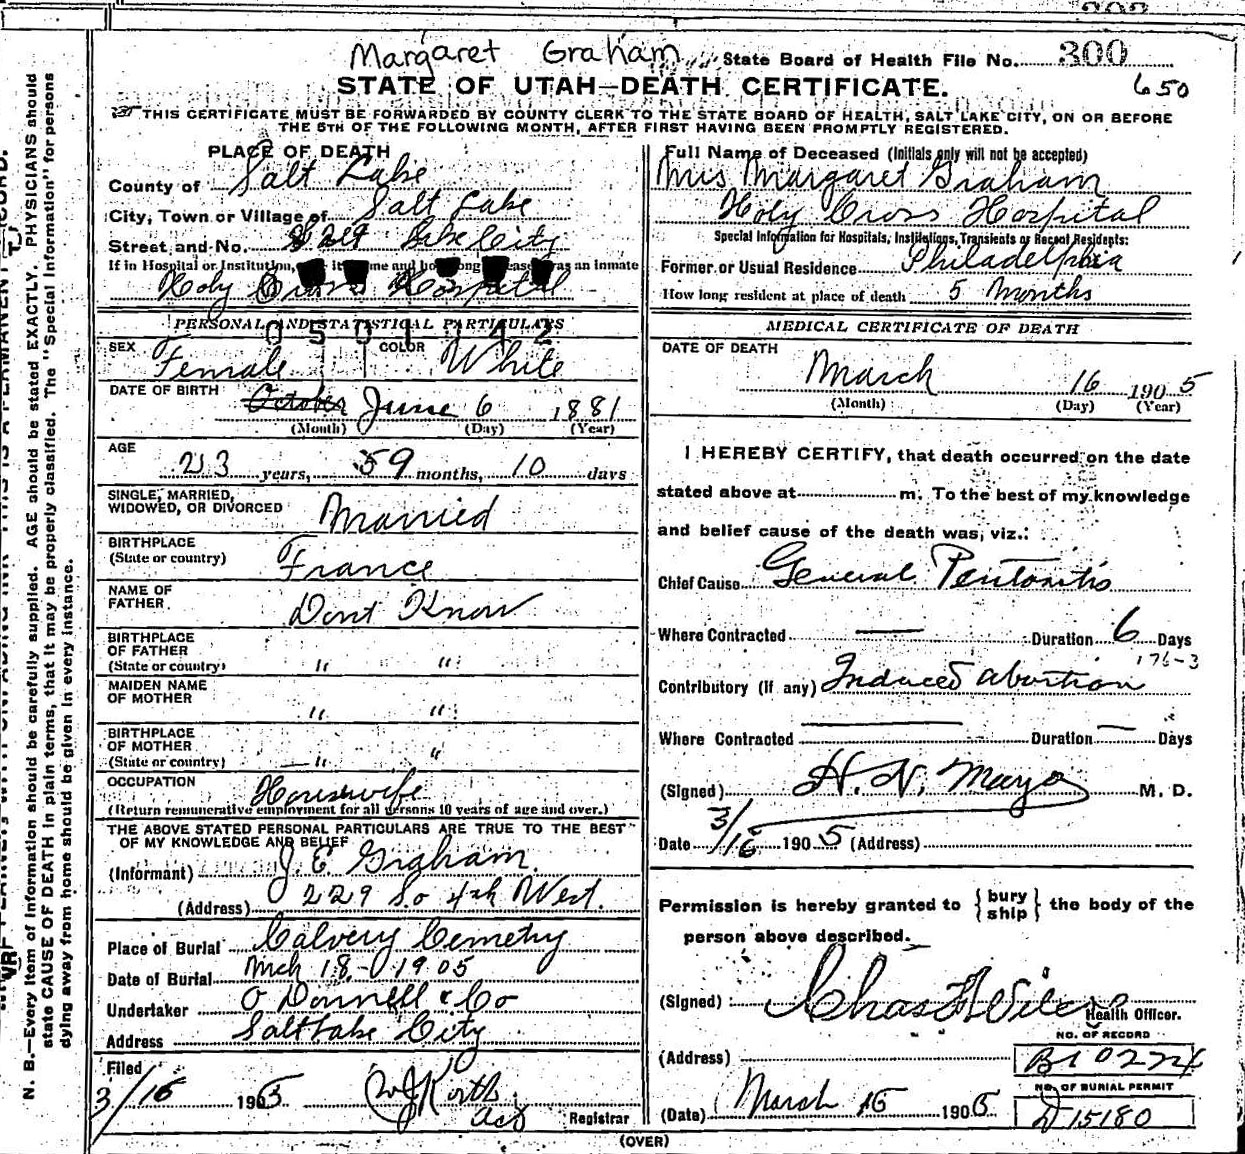 Margaret Graham State Board of Health File No. 300
STATE OF UTAH—DEATH CERTIFICATE.
650
THIS CERTIFICATE MUST BE FORWARDED BY COUNTY CLERK TO THE STATE BOARD OF HEALTH, SALT LAKE CITY, ON OR BEFORE
THE 5TH OF THE FOLLOWING MONTH, AFTER FIRST HAVING BEEN PROMPTLY REGISTERED.
PLACE OF DEATH
County of Salt Lake
City, Town or Village of Salt Lake
Street and No. Salt Lake City
If in Hospital or Institution, was an inmate
Holy Cross Hospital
PERSONAL AND STATISTICAL PARTICULARS
0501042
SEX Female COLOR White
DATE OF BIRTH October June 6 1881
(Month) (Day) (Year)
AGE
23 years, 9 months, 10 days
SINGLE, MARRIED,
WIDOWED, OR DIVORCED Married
BIRTHPLACE
(State or country) France
NAME OF
FATHER Dont Know
BIRTHPLACE
OF FATHER
(State or country) " "
MAIDEN NAME
OF MOTHER " "
BIRTHPLACE
OF MOTHER
(State or country) " "
OCCUPATION Housewife
(Return remunerative employment for all persons 10 years of age and over.)
THE ABOVE STATED PERSONAL PARTICULARS ARE TRUE TO THE BEST
OF MY KNOWLEDGE AND BELIEF
(Informant) J. E. Graham
(Address) 229 So 4th West.
Place of Burial Calvery Cemetry
Date of Burial Mch 18 - 1905
Undertaker O Donnell & Co
Address Salt Lake City
Filed
3/16 1905
Registrar
Full Name of Deceased (Initials only will not be accepted)
Mrs Margaret Graham
Holy Cross Hospital
Special Information for Hospitals, Institutions, Transients or Recent Residents:
Former or Usual Residence Philadelphia
How long resident at place of death 5 Months
MEDICAL CERTIFICATE OF DEATH
DATE OF DEATH
March 16 1905
(Month) (Day) (Year)
I HEREBY CERTIFY, that death occurred on the date
stated above at m. To the best of my knowledge
and belief cause of the death was, viz.:
Chief Cause General Peritonitis
Where Contracted — Duration 6 Days
176-3
Contributory (if any) Induced abortion
Where Contracted — Duration — Days
(Signed) H. N. Mayo M. D.
Date 3/16 1905 (Address)
Permission is hereby granted to {bury
ship} the body of the
person above described.
(Signed) Health Officer.
NO. OF RECORD
(Address)
NO. OF BURIAL PERMIT
(Date) March 16 1905 D15180
(OVER)
N. B.—Every item of information should be carefully supplied. AGE should be stated EXACTLY. PHYSICIANS should
state CAUSE OF DEATH in plain terms, that it may be properly classified. The "Special Information" for persons
dying away from home should be given in every instance.